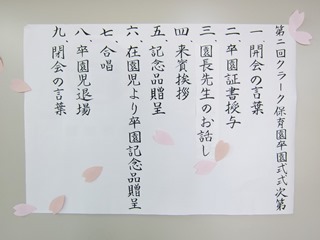 第二回クラーク保育園卒園式式次第
一、開会の言葉
二、卒園証書授与
三、園長先生のお話し
四、来賓挨拶
五、記念品贈呈
六、在園児より卒園記念品贈呈
七、合唱
八、卒園児退場
九、閉会の言葉